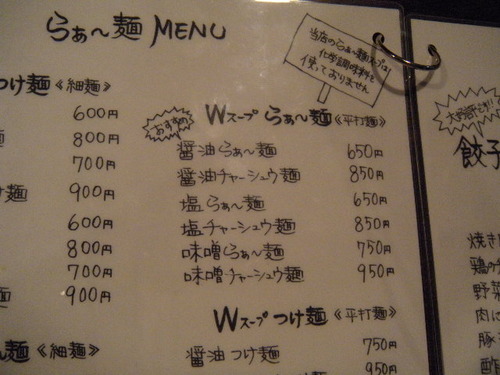 らぁ〜麺 MENU
当店のらぁ〜麺スープは
化学調味料を
使っておりません
つけ麺 《細麺》
600円
800円
700円
900円
600円
800円
700円
900円
麺 《細麺》
おすすめ
Wスープ らぁ〜麺 《平打麺》
醤油らぁ〜麺 650円
醤油チャーシュウ麺 850円
塩らぁ〜麺 650円
塩チャーシュウ麺 850円
味噌らぁ〜麺 750円
味噌チャーシュウ麺 950円
Wスープ つけ麺 《平打麺》
醤油つけ麺 750円
950円
餃子
焼き
鶏の
野菜
肉に
豚
酢